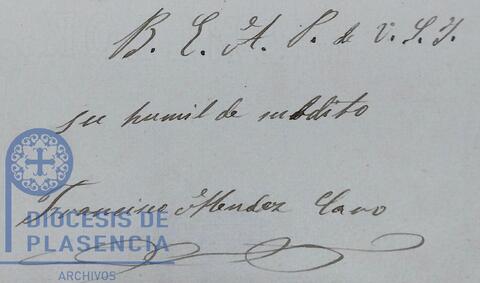 B. E. A. P. de V. S. Y.
su humilde subdito
Francisco Mendez Cavo
DIOCESIS DE
PLASENCIA
ARCHIVOS